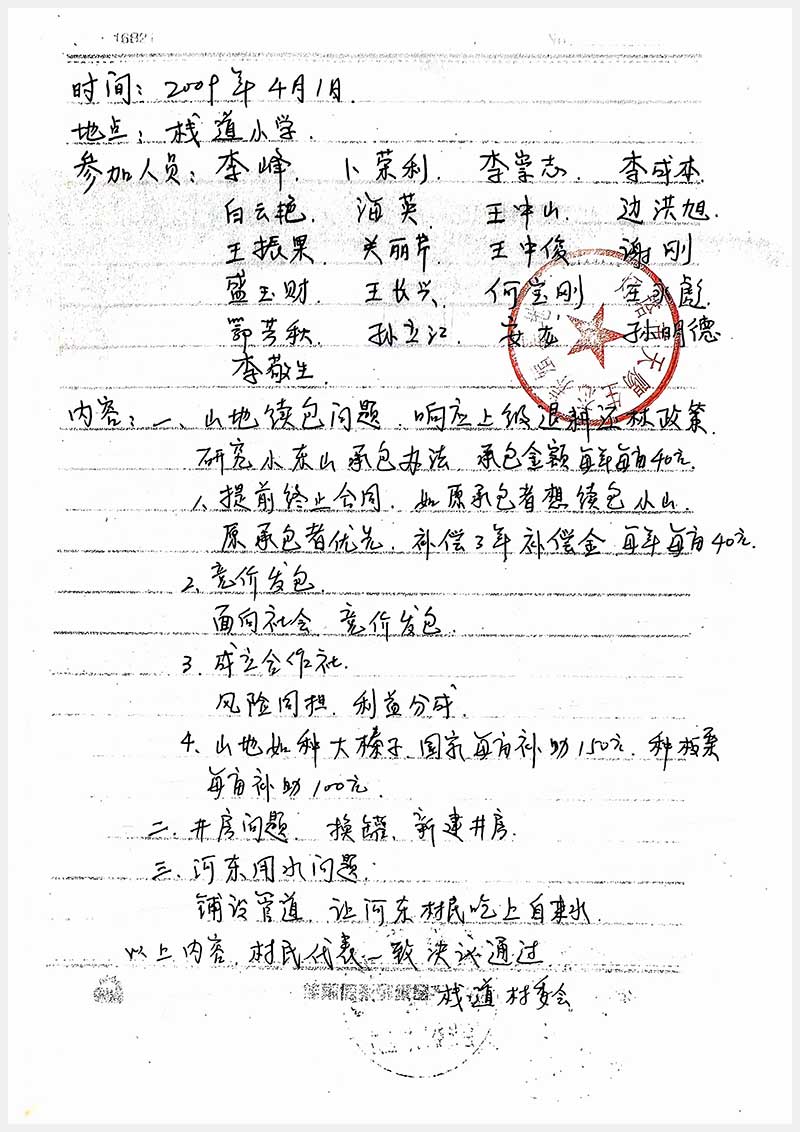 1682
No.
时间：2009年4月1日.
地点：栈道小学.
参加人员：李峰. 卜荣利. 李崇志. 李成本.
白云艳. 海英. 王中山. 边洪旭.
王振果. 关丽芹. 王中俊. 谢刚
盛玉财. 王长兴. 何宝刚 彪.
鄂芳秋. 孙立江. 安龙. 孙明德
李敬生.
内容：一、山地续包问题. 响应上级退耕还林政策.
研究小东山承包办法. 承包金额每年每亩40元.
1、提前终止合同. 如原承包者想续包小山.
原承包者优先. 补偿3年补偿金. 每年每亩40元.
2、竞价发包.
面向社会 竞价发包.
3、成立合作社.
风险同担. 利益分成.
4、山地如种大榛子. 国家每亩补助150元. 种板栗
每亩补助100元.
二. 井房问题. 换罐、新建井房.
三. 河东用水问题.
铺设管道. 让河东村民吃上自来水.
以上内容. 村民代表一致决议通过.
栈道村委会